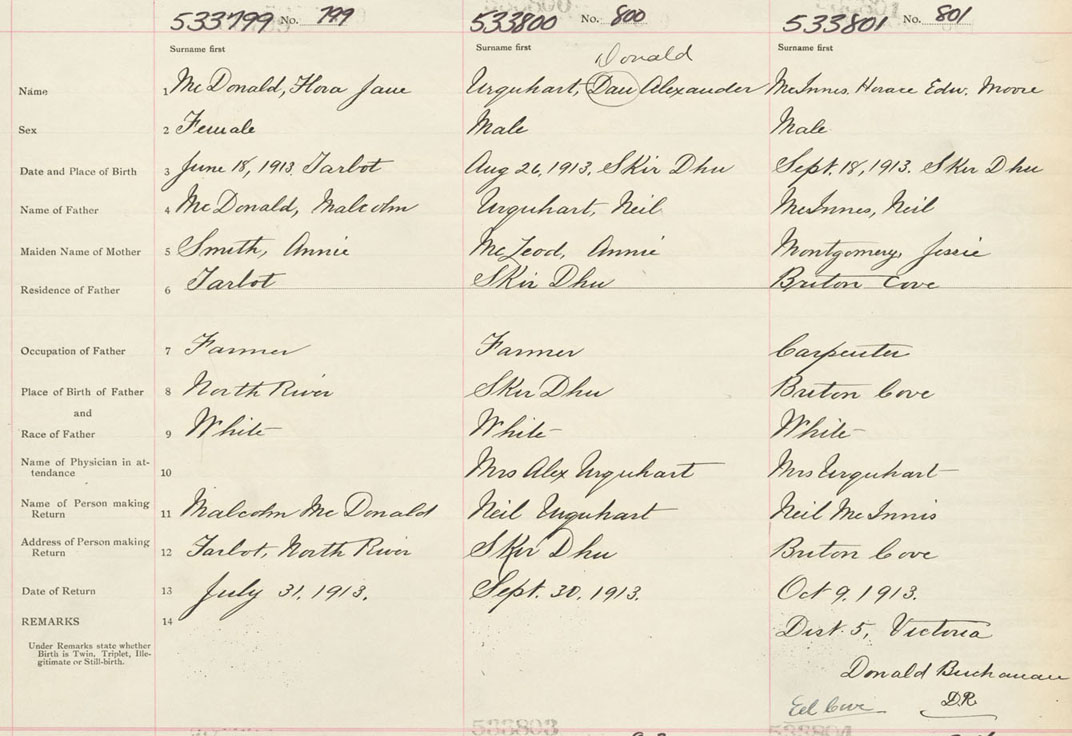 533799 No. 799 533800 No. 800 533801 No. 801
Surname first Surname first Surname first
Donald
Name 1 McDonald, Flora Jane Urquhart, Dan Alexander McInnes, Horace Edw. Moore
Sex 2 Female Male Male
Date and Place of Birth 3 June 18, 1913, Tarbot Aug 26, 1913, Skir Dhu Sept. 18, 1913. Skir Dhu
Name of Father 4 McDonald, Malcolm Urquhart, Neil McInnes, Neil
Maiden Name of Mother 5 Smith, Annie McLeod, Annie Montgomery, Jessie
Residence of Father 6 Tarbot Skir Dhu Briton Cove
Occupation of Father 7 Farmer Farmer Carpenter
Place of Birth of Father 8 North River Skir Dhu Briton Cove
and
Race of Father 9 White White White
Name of Physician in at-
tendance 10 Mrs Alex Urquhart Mrs Urquhart
Name of Person making
Return 11 Malcolm McDonald Neil Urquhart Neil McInnis
Address of Person making
Return 12 Tarbot, North River Skir Dhu Briton Cove
Date of Return 13 July 31, 1913. Sept. 30, 1913. Oct 9, 1913.
REMARKS 14 Dist. 5, Victoria
Under Remarks state whether
Birth is Twin, Triplet, Ille-
gitimate or Still-birth.
Donald Buchanan
D.R.
533803 533804